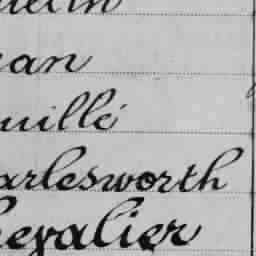 ean
uillé
arlesworth
hevalier